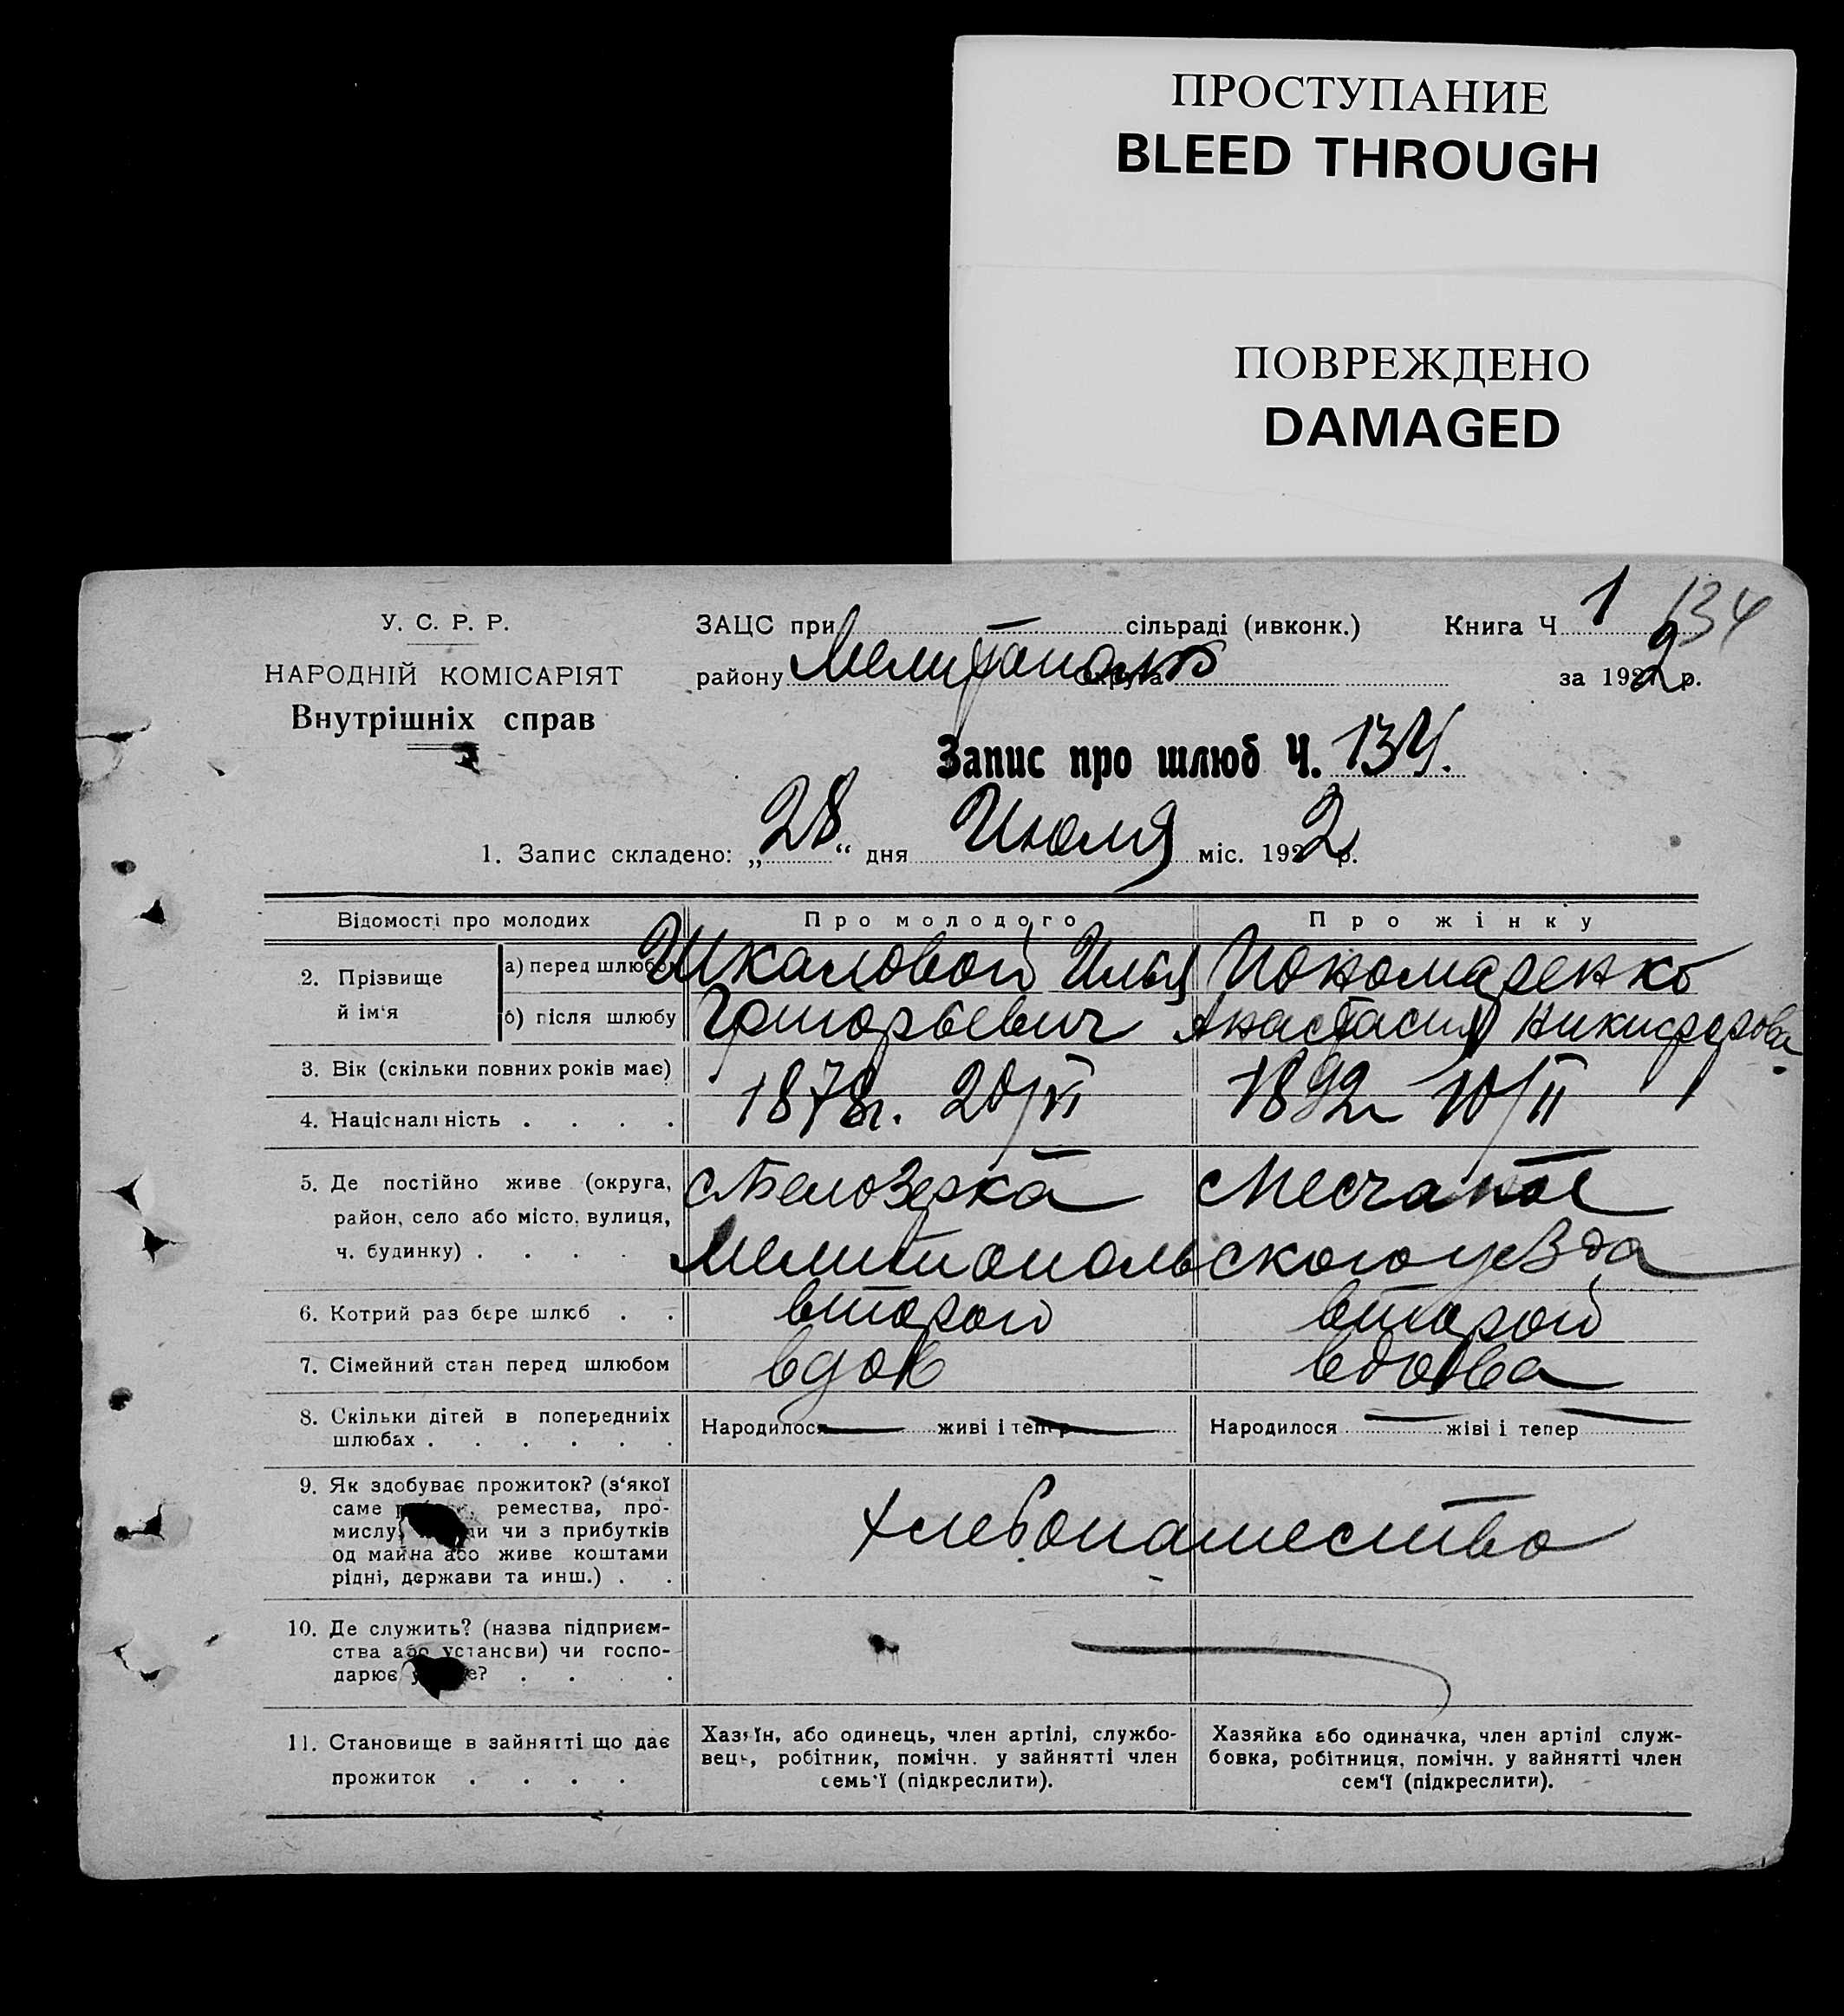 ПРОСТУПАНИЕ
BLEED THROUGH
ПОВРЕЖДЕНО
DAMAGED
У. С. Р. Р.
НАРОДНІЙ КОМІСАРІЯТ
Внутрішніх справ
ЗАЦС при сільраді (ивконк.)
району Мелитополь округа
Книга Ч 1 134
за 1922 р.
Запис про шлюб Ч. 134.
1. Запис складено: „28“ дня Июля міс. 1922 р.
Відомості про молодих Про молодого Про жінку
2. Прізвище й ім‘я а) перед шлюбом Шкаловой Илья Пономаренко
б) після шлюбу Григорьевич Анастасия Никифорова
3. Вік (скільки повних років має)
4. Національність . . . . 1878г. 20/VI 1892 10/II
5. Де постійно живе (округа, с Белозерка с Песчаное
район, село або місто, вулиця,
ч. будинку) . . . . Мелитопольского уезда
6. Котрий раз бере шлюб . . второй второй
7. Сімейний стан перед шлюбом вдов вдова
8. Скільки дітей в попередниіх Народилося живі і тепер Народилося жіві і тепер
шлюбах . . . . . .
9. Як здобуває прожиток? (з‘якої
саме ремества, про-
мислу, чи з прибутків хлебопашество
од майна або живе коштами
рідні, держави та инш.) . .
10. Де служить? (назва підприєм-
ства або установи) чи госпо-
дарює . . . .
11. Становище в зайнятті що дає
прожиток . . . .
Хазяїн, або одинець, член артілі, службо-
вець, робітник, помічн. у зайнятті член
семь‘ї (підкреслити).
Хазяйка або одиначка, член артілі служ-
бовка, робітниця, помічн. у зайнятті член
сем‘ї (підкреслити).